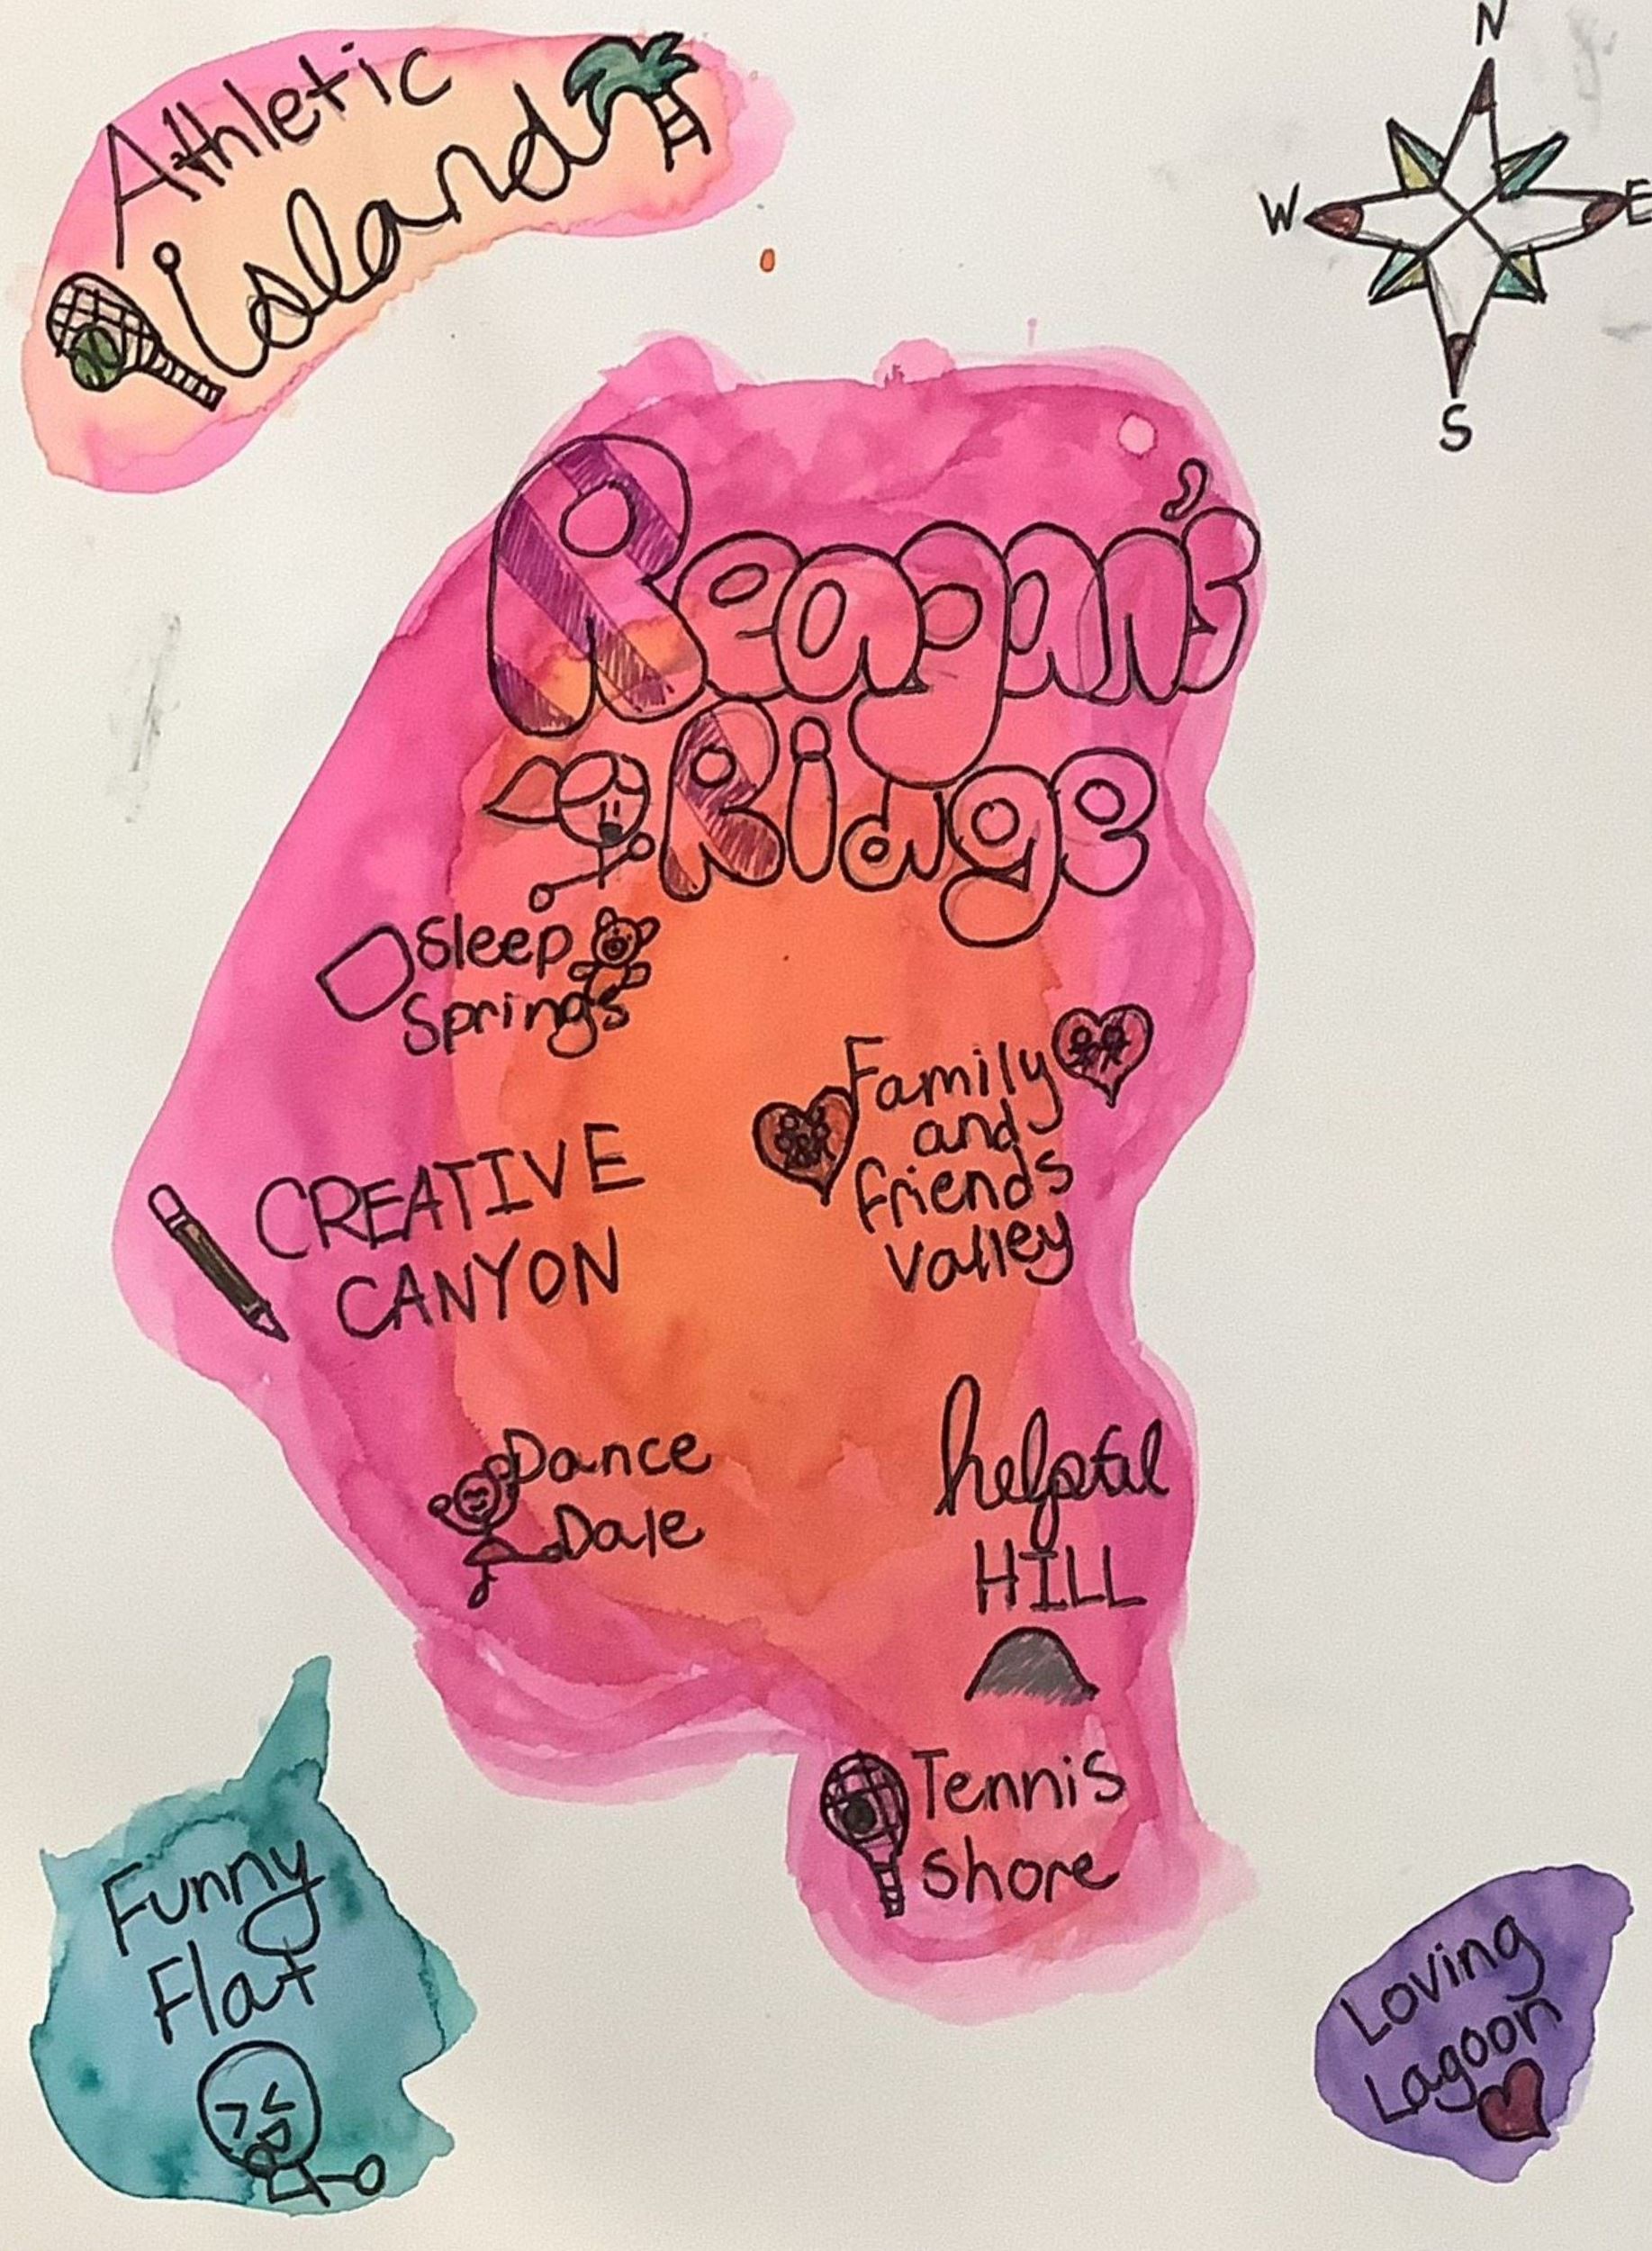 Athletic
island
N
W E
S
Reagan's
Ridge
Sleep
Springs
Family
and
friends
valley
CREATIVE
CANYON
Dance
Dale
helpful
HILL
Tennis
shore
Funny
Flat
Loving
Lagoon